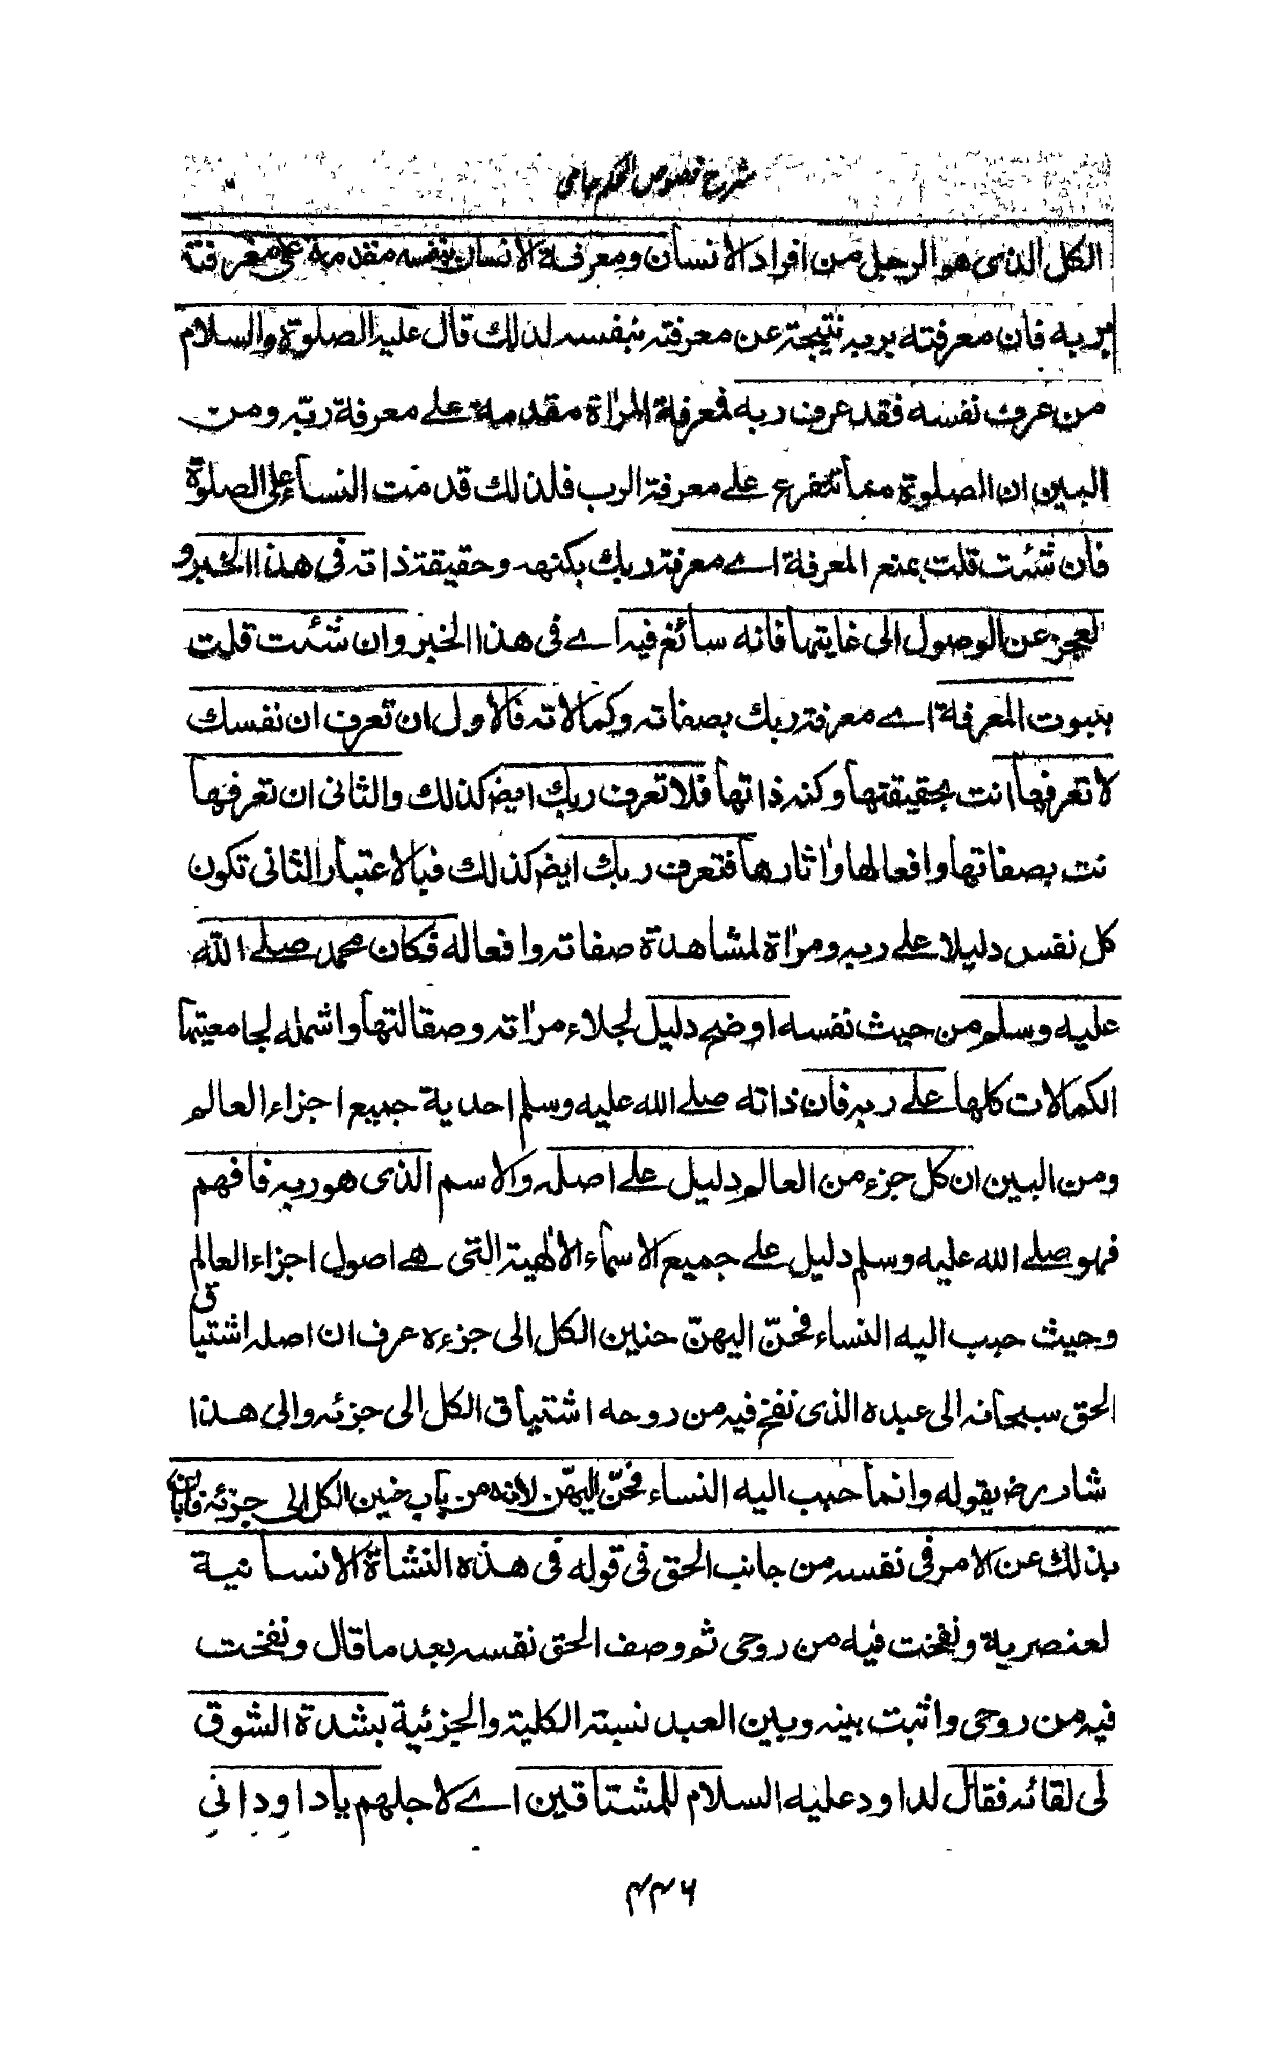 شرح فصوص الحكم جامى
الكل الذى هو الرجل من افراد الانسان ومعرفة الانسان بنفسه مقدمة على معرفته
بربه فان معرفته بربه نتيجة عن معرفته بنفسه لذلك قال عليه الصلوة والسلام
من عرف نفسه فقد عرف ربه فمعرفة المرأة مقدمة علے معرفة ربّه ومن
البين ان الصلوة مما تتفرع علے معرفة الرب فلذلك قدمت النساء على الصلوة
فان شئت قلت بمنع المعرفة اے معرفة ربك بكنهه وحقيقة ذاته فى هذا الخبر و
لعجز عن الوصول الى غايتها فانه سائغ فيه اے فى هذا الخبر وان شئت قلت
بثبوت المعرفة اے معرفة ربك بصفاته وكمالاته فالاول ان تعرف ان نفسك
لا تعرفها انت بحقيقتها وكنه ذاتها فلا تعرف ربك ايض كذلك والثانى ان تعرفها
نت بصفاتها وافعالها واثارها فتعرف ربك ايض كذلك فبالاعتبار الثانى تكون
كل نفس دليلا علے ربه ومرأة لمشاهدة صفاته وافعاله فكان محمد صلے الله
عليه وسلم من حيث نفسه اوضح دليل لجلاء مرأته وصقالتها واشمله لجامعيتها
الكمالات كلها علے ربه فان ذاته صلے الله عليه وسلم احدية جميع اجزاء العالم
ومن البين ان كل جزء من العالم دليل علے اصله والاسم الذى هو ربه فافهم
فهو صلے الله عليه وسلم دليل علے جميع الاسماء الالهية التى هے اصول اجزاء العالم
وحيث حبب اليه النساء فحنّ اليهنّ حنين الكل الى جزءه عرف ان اصله اشتياق
الحق سبحانه الى عبده الذى نفخ فيه من روحه اشتياق الكل الى جزئه والى هذا
شار رض بقوله وانما حبب اليه النساء فحنّ اليهنّ لانه من باب حنين الكل الى جزئه فابان
بذلك عن الامر فى نفسه من جانب الحق فى قوله فى هذه النشأة الانسانية
لعنصرية ونفخت فيه من روحى ثم وصف الحق نفسه بعد ما قال ونفخت
فيه من روحى واثبت بينه وبين العبد نسبة الكلية والجزئية بشدة الشوق
لى لقائه فقال لداود عليه السلام للمشتاقين اے لاجلهم ياداود انى
۴۴۶